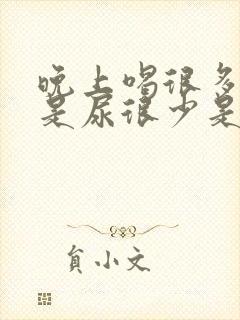 晚上喝很多
是尿很少是
貟小文